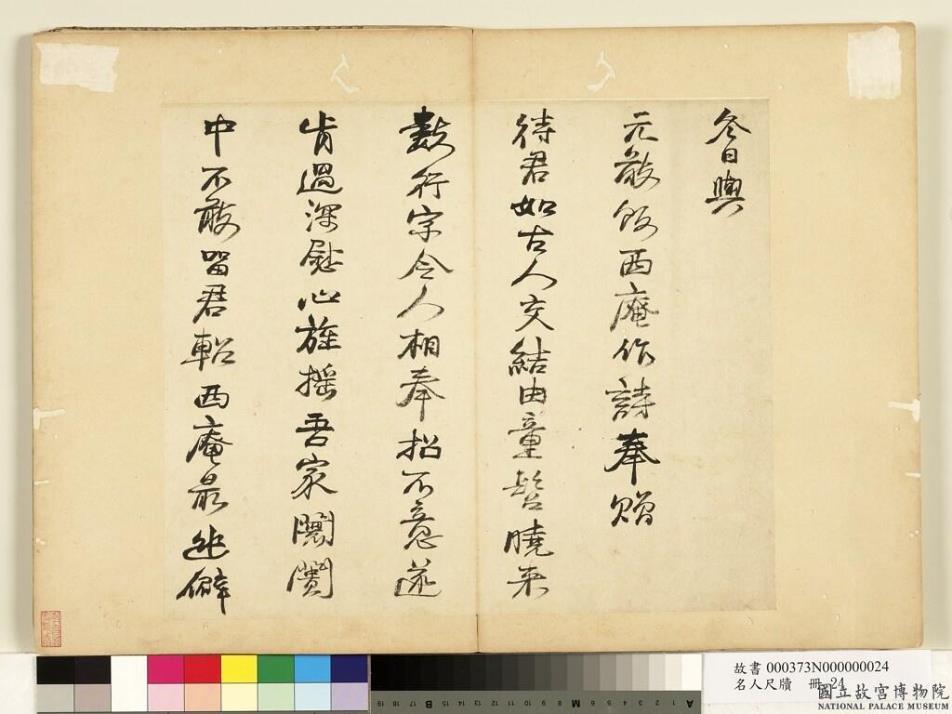 冬日與
元敬飯西庵作詩奉贈
待君如古人交結由童髫曉來
數行字令人相奉招不意遂
肯過深慰心旌搖吾家闤闠
中不敢留君軺西庵最幽僻
故書 000373N000000024
名人尺牘 冊 24
國立故宮博物院
NATIONAL PALACE MUSEUM